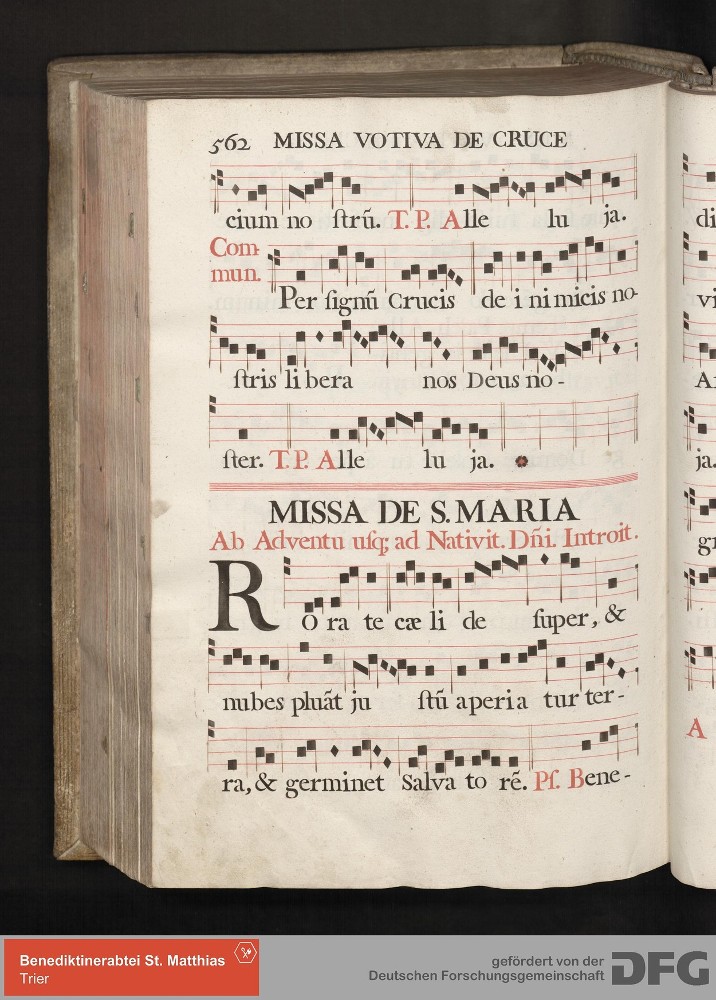 562 MISSA VOTIVA DE CRUCE
cium no ſtrū. T. P. Alle lu ja.
Com-
mun.
Per ſignũ Crucis de i ni micis no-
ſtris li bera nos Deus no-
ſter. T. P. Alle lu ja.
MISSA DE S. MARIA
Ab Adventu uſq; ad Nativit. Dñi. Introit.
RO ra te cæ li de ſuper, &
nubes pluãt ju ſtũ aperia tur ter-
ra, & germinet Salva to rẽ. Pſ. Bene-
di
vi
A
ja.
gr
A
Benediktinerabtei St. Matthias
Trier
gefördert von der
Deutschen Forschungsgemeinschaft DFG